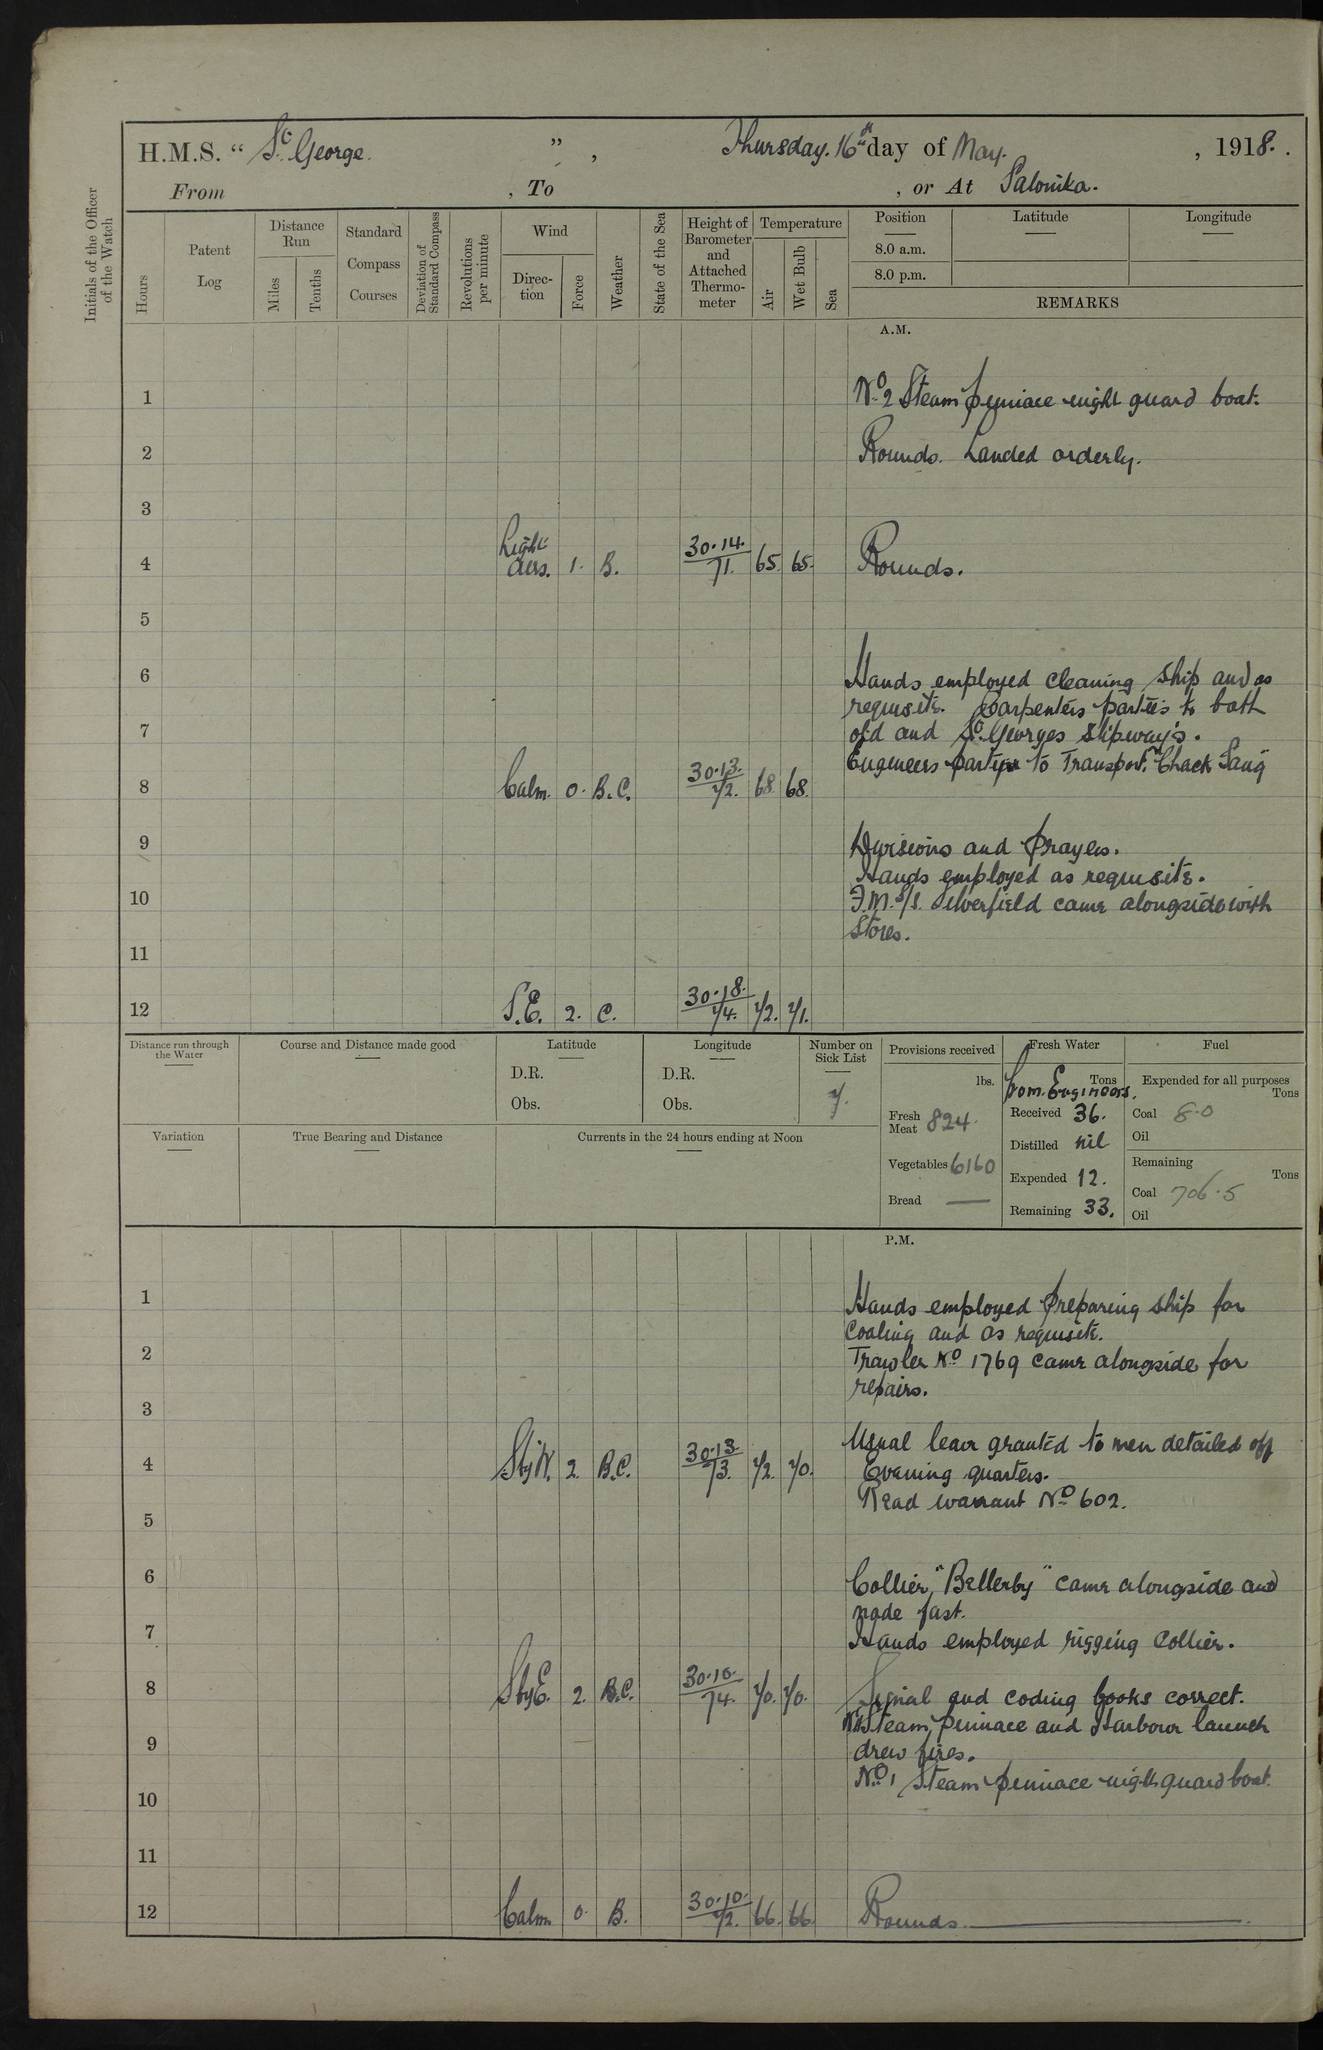 H.M.S. “ St. George. ” , Thursday. 16th day of May. , 1918. .
From , To , or At Salonika.
Initials of the Officer of the Watch
Hours
Patent Log
Distance Run
Miles
Tenths
Standard Compass Courses
Deviation of Standard Compass
Revolutions per minute
Wind
Direction
Force
Weather
State of the Sea
Height of Barometer and Attached Thermometer
Temperature
Air
Wet Bulb
Sea
Position Latitude Longitude
8.0 a.m.
8.0 p.m.
REMARKS
A.M.
1 No. 2 Steam pinnace night guard boat.
2 Rounds. Landed orderly.
3
4 Light airs. 1. B. 30.14. 71. 65. 65. Rounds.
5
6 Hands employed cleaning ship and as
requisite. Carpenters parties to both
7 old and St. Georges slipway's.
Engineers party to Transport "Chack Sang"
8 Calm. 0. B.C. 30.13. 72. 68. 68.
9 Divisions and prayers.
Hands employed as requisite.
10 F.M.S/S. Silverfield came alongside with
stores.
11
12 S.E. 2. C. 30.18. 74. 72. 71.
Distance run through the Water
Course and Distance made good
Latitude
D.R.
Obs.
Longitude
D.R.
Obs.
Number on Sick List
7.
Provisions received
lbs.
Fresh Meat 824.
Vegetables 6160
Bread —
Fresh Water
Tons
From Engineers.
Received 36.
Distilled nil
Expended 12.
Remaining 33.
Fuel
Expended for all purposes
Tons
Coal 8.0
Oil
Remaining
Tons
Coal 706.5
Oil
Variation
True Bearing and Distance
Currents in the 24 hours ending at Noon
P.M.
1 Hands employed preparing ship for
coaling and as requisite.
2 Trawler No. 1769 came alongside for
repairs.
3
Usual leave granted to men detailed off
4 S by W. 2. B.C. 30.13. 73. 72. 70. Evening quarters.
Read warrant No. 602.
5
6 Collier, "Bellerby" came alongside and
made fast.
7 Hands employed rigging collier.
8 S by E. 2. B.C. 30.10. 74. 70. 70. Signal and coding books correct.
Steam pinnace and Harbour launch
9 drew fires.
No. 1 Steam pinnace night guard boat.
10
11
12 Calm 0. B. 30.10. 72. 66. 66. Rounds